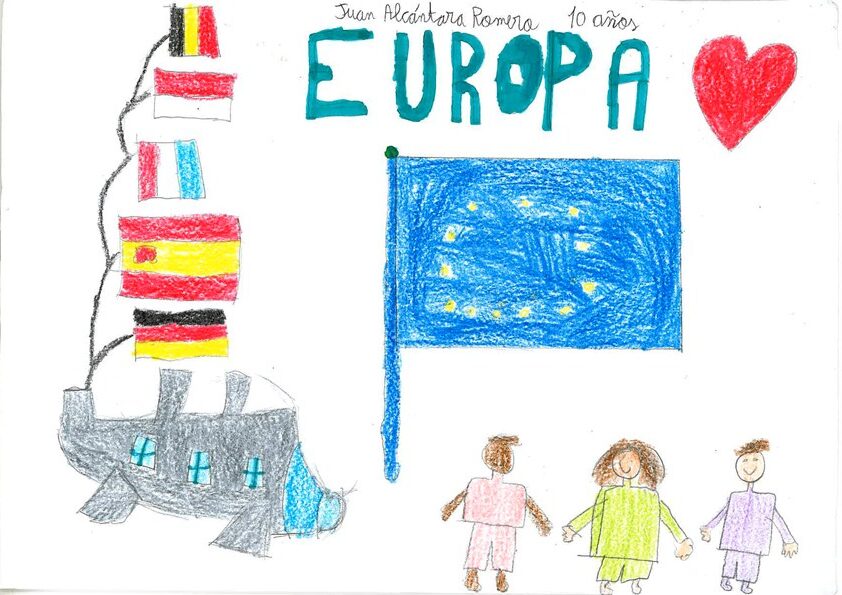 Juan Alcántara Romero 10 años
EUROPA